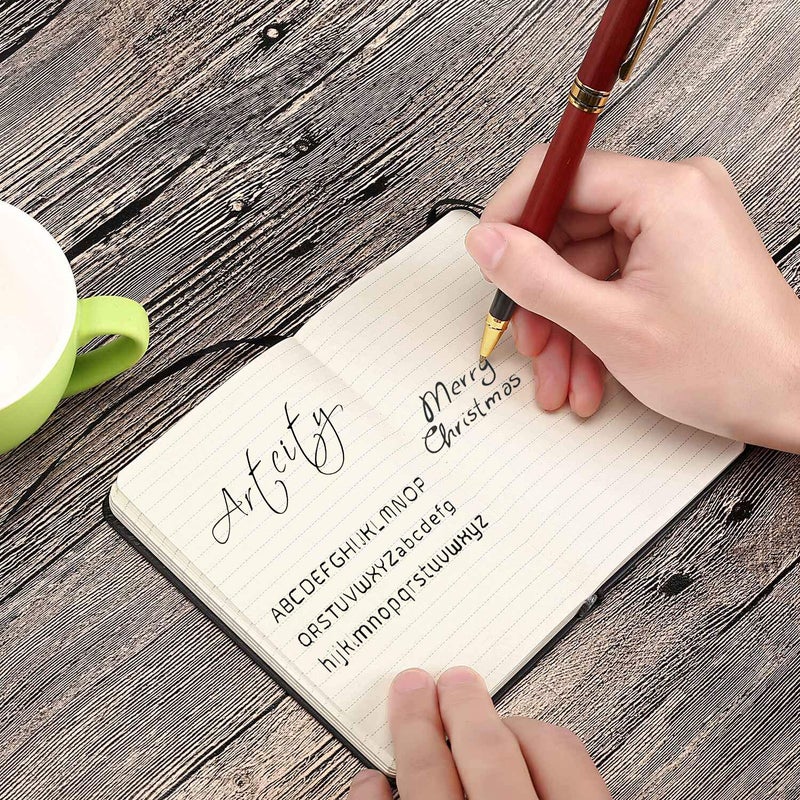 Artcity
Merry
Christmas
ABCDEFGHIJKLMNOP
QRSTUVWXYZabcdefg
hijk.mnopqrstuvwxyz